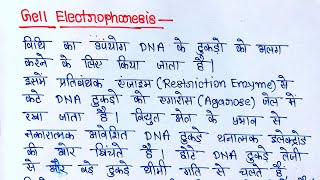 Gell Electrophoresis —
विधि का उपयोग DNA के टुकड़ो को अलग
करने के लिए किया जाता है।
इसमें प्रतिबंधक एन्जाइम (Restriction Enzyme) से
कटे DNA टुकड़ो को एगारोस (Agarose) जेल में
रखा जाता है। विद्युत क्षेत्र के प्रभाव से
नकारात्मक आवेशित DNA टुकड़े धनात्मक इलेक्ट्रोड
की ओर खिंचते हैं। छोटे DNA टुकड़े तेजी
से और बड़े टुकड़े धीमी गति से चलते हैं।